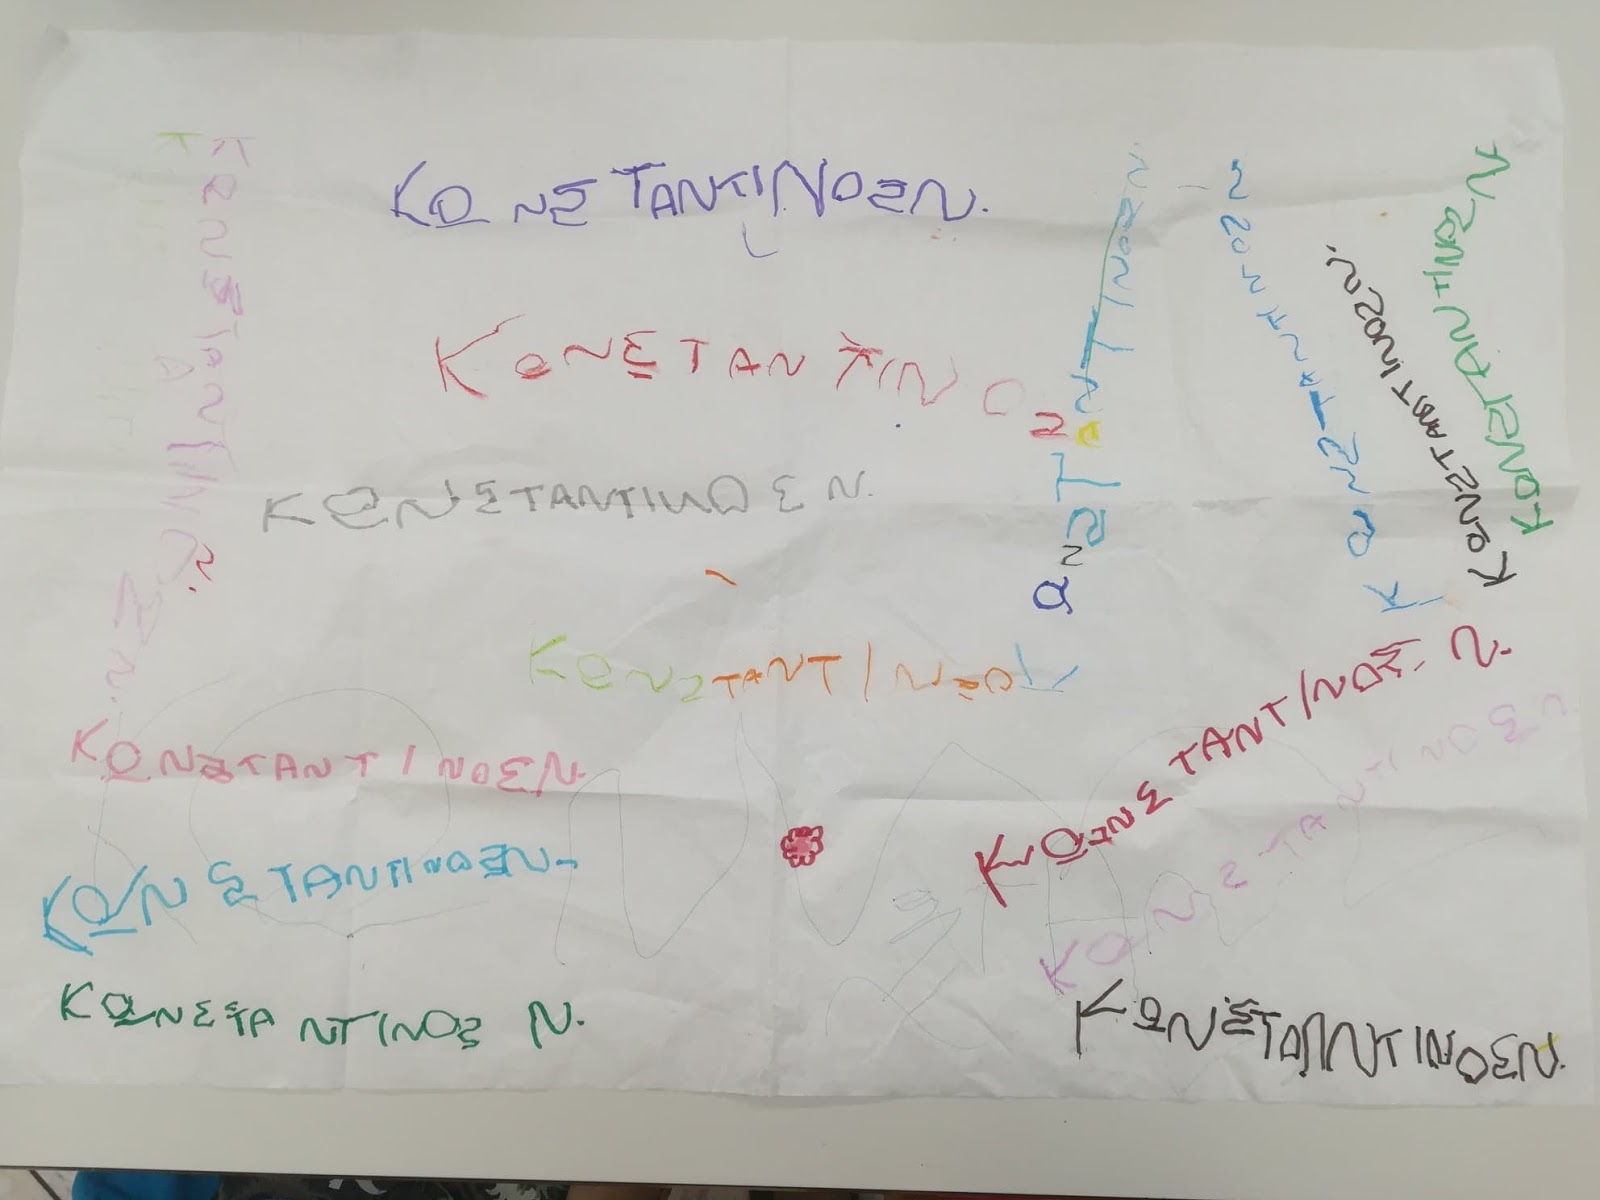 ΚΩΝΣΤΑΝΤΙΝΟΣ Ν.
ΚΩΝΣΤΑΝΤΙΝΟΣ
ΚΩΝΣΤΑΝΤΙΝΟΣ Ν.
ΚΩΝΣΤΑΝΤΙΝΣΟ
ΚΩΝΣΤΑΝΤΙΝΟΣ Ν.
ΚΩΝΣΤΑΝΤΙΝΟΣ Ν.
ΚΩΝΣΤΑΝΤΙΝΟΣ Ν.
ΚΩΝΣΤΑΝΤΙΝΟΣ Ν.
ΚΩΝΣΤΑΝΤΙΝΟΣ Ν.
ΚΩΝΣΤΑΝΤΙΝΟΣ Ν
ΚΩΝΣΤΑΝΤΙΝΟΣ Ν.
ΚΩΝΣΤΑΝΤΙΝΟΣ Ν
ΚΩΝΣΤΑΝΤΙΝΟΣ Ν.
ΚΩΝΣΤΑΝΤΙΝΟΣ Ν
ΚΩΝΣΤΑΝΤΙΝΟΣ Ν.